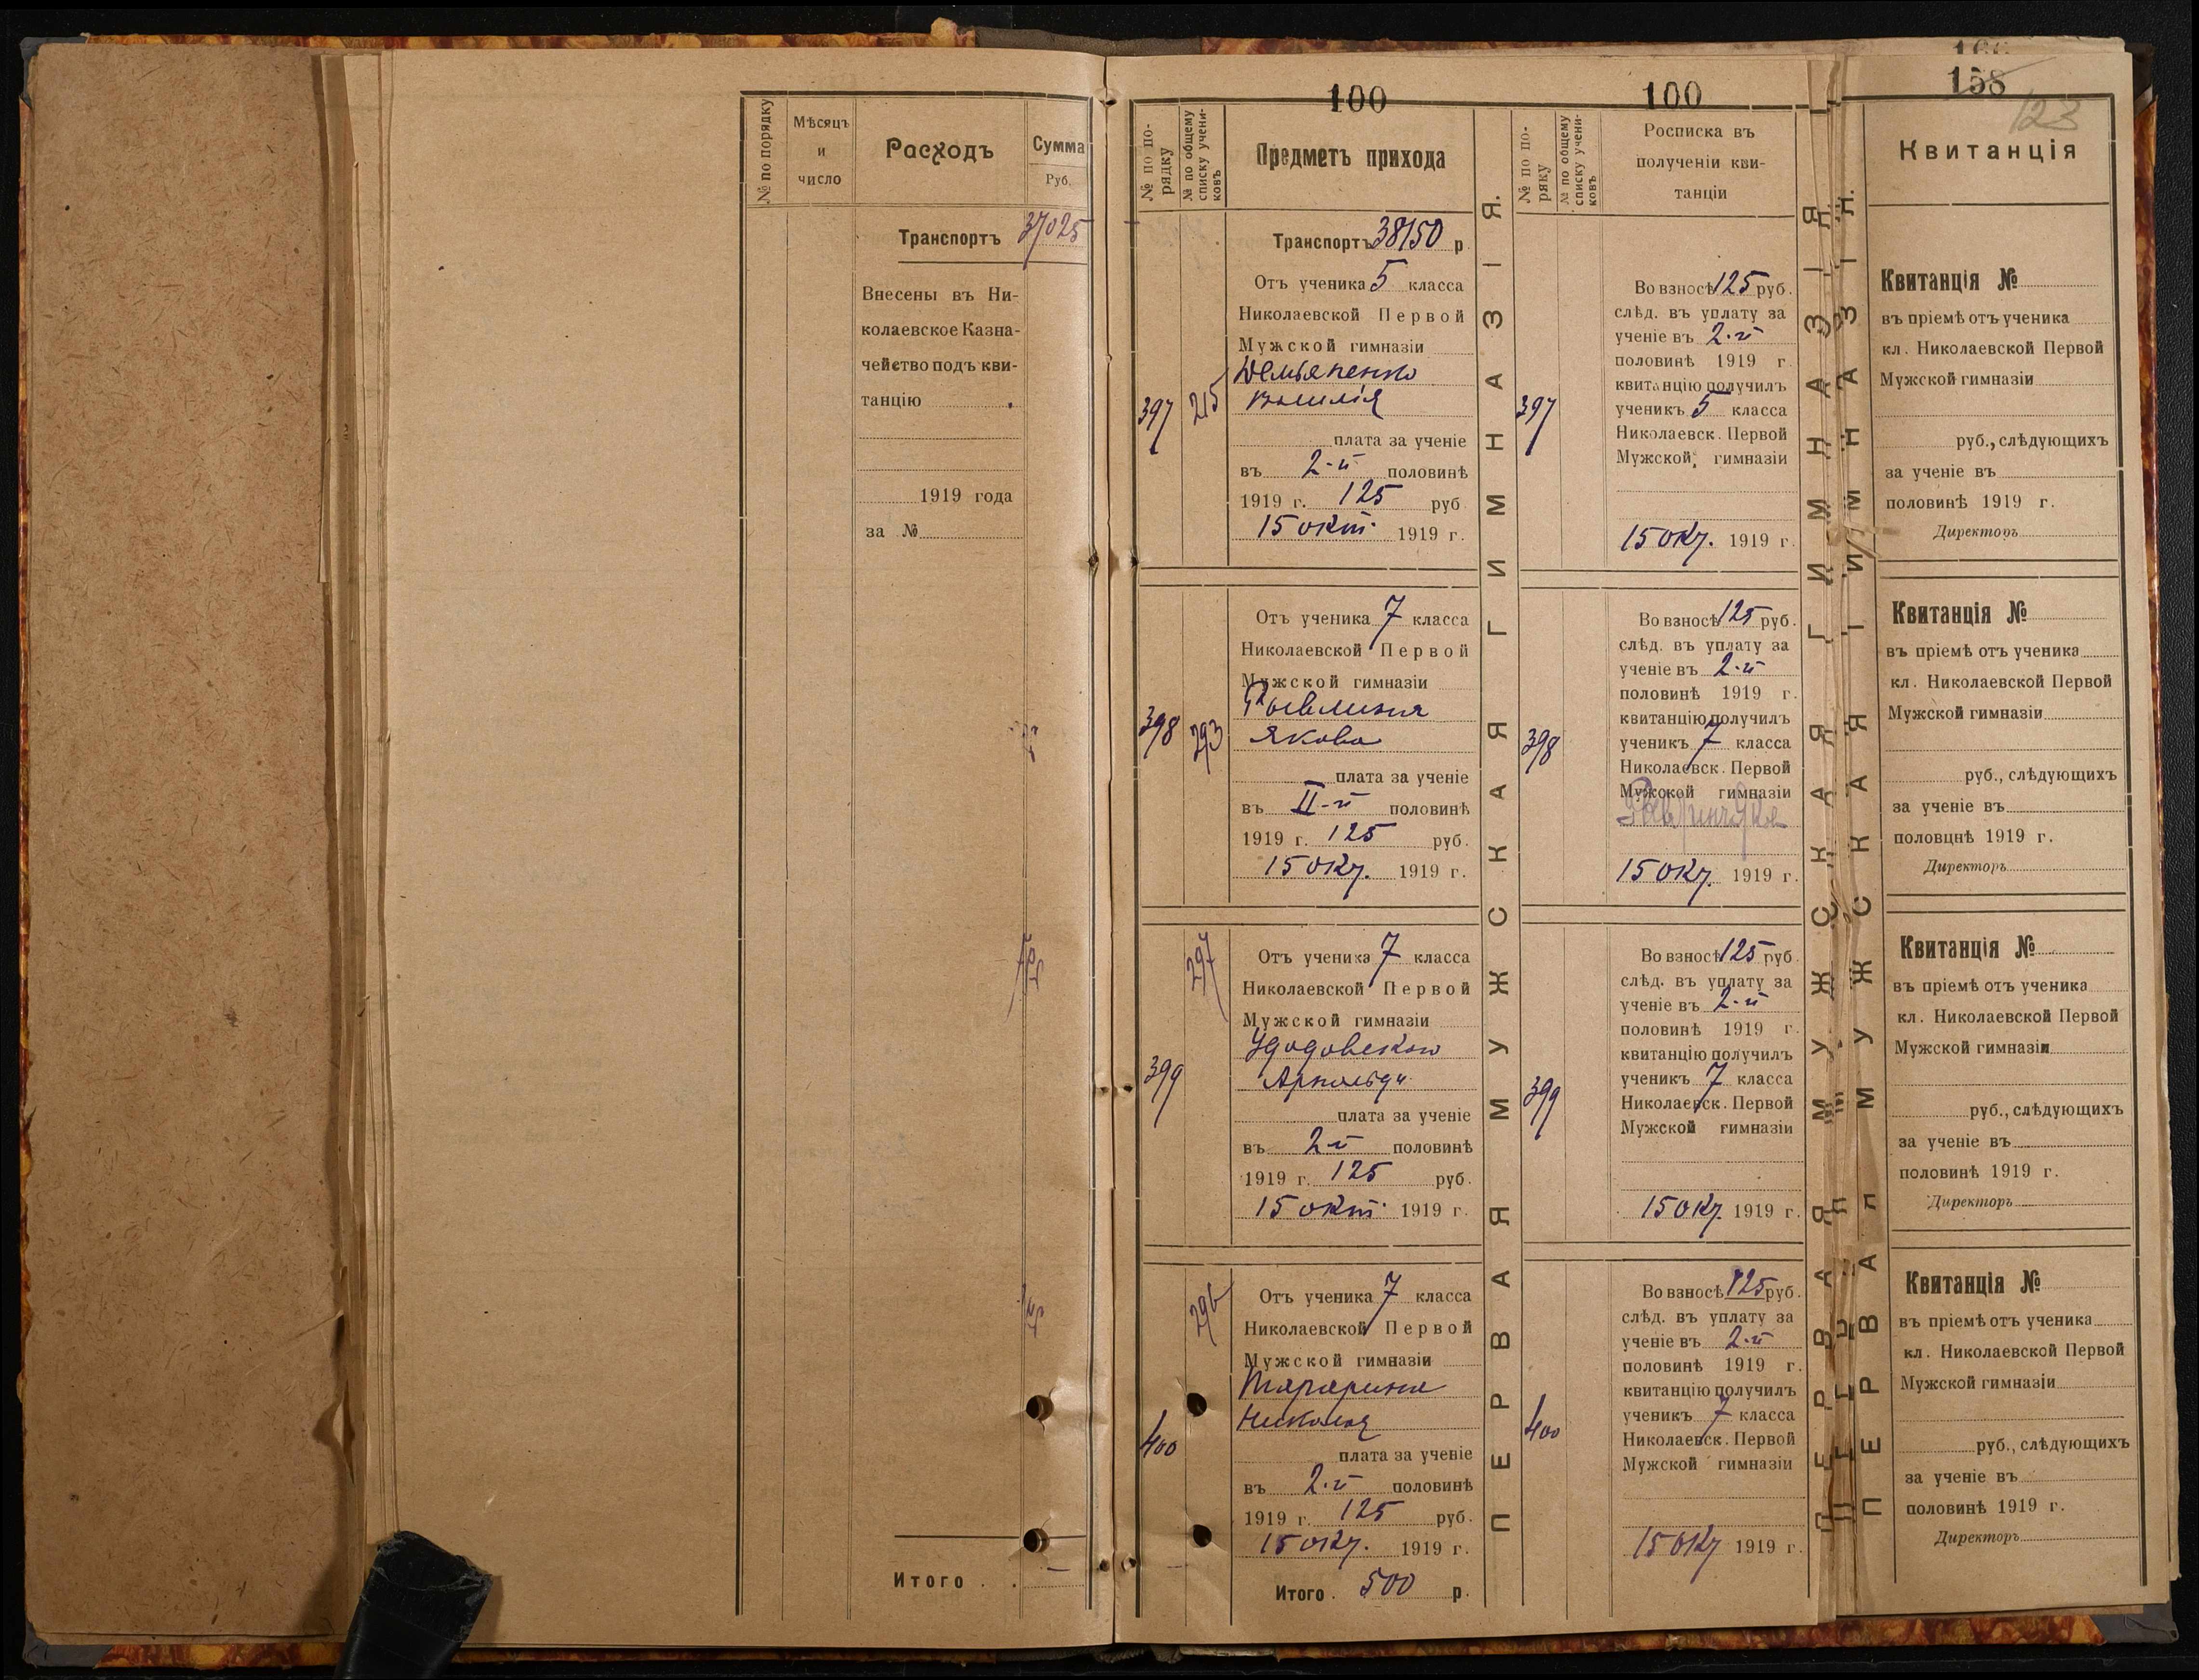 № по порядку
Мѣсяцъ
и
число
Расходъ
Сумма
Руб.
Транспортъ 37025
Внесены въ Ни-
колаевское Казна-
чейство подъ кви-
танцію
1919 года
за №
Итого . . —
100
№ по по-
рядку
№ по общему
списку учени-
ковъ
Предметъ прихода
Транспортъ 38150 р
397
215
Отъ ученика 5 класса
Николаевской Первой
Мужской гимназіи
Демьяненко
Василія
плата за ученіе
въ 2-й половинѣ
1919 г. 125 руб
15 окт. 1919 г.
398
293
Отъ ученика 7 класса
Николаевской Первой
Мужской гимназіи
Равлина
Якова
плата за ученіе
въ II-й половинѣ
1919 г. 125 руб.
15 окт. 1919 г.
399
297
Отъ ученика 7 класса
Николаевской Первой
Мужской гимназіи
Удодовского
Арнольда
плата за ученіе
въ 2-й половинѣ
1919 г. 125 руб.
15 окт. 1919 г.
400
296
Отъ ученика 7 класса
Николаевской Первой
Мужской гимназіи
Тарарина
Николая
плата за ученіе
въ 2-й половинѣ
1919 г. 125 руб.
15 окт. 1919 г.
Итого . 500 р.
ПЕРВАЯ МУЖСКАЯ ГИМНАЗІЯ.
100
№ по по-
ряку
№ по общему
списку учени-
ковъ
Росписка въ
полученіи кви-
танціи
397
Во взносѣ 125 руб.
слѣд. въ уплату за
ученіе въ 2-й
половинѣ 1919 г
квитанцію получилъ
ученикъ 5 класса
Николаевск. Первой
Мужской гимназіи
15 окт. 1919 г.
398
Во взносѣ 125 руб.
слѣд. въ уплату за
ученіе въ 2-й
половинѣ 1919 г.
квитанцію получилъ
ученикъ 7 класса
Николаевск. Первой
Мужской гимназіи
15 окт. 1919 г.
399
Во взносѣ 125 руб.
слѣд. въ уплату за
ученіе въ 2-й
половинѣ 1919 г.
квитанцію получилъ
ученикъ 7 класса
Николаевск. Первой
Мужской гимназіи
15 окт. 1919 г.
400
Во взносѣ 125 руб.
слѣд. въ уплату за
ученіе въ 2-й
половинѣ 1919 г.
квитанцію получилъ
ученикъ 7 класса
Николаевск. Первой
Мужской гимназіи
15 окт 1919 г.
158
123
Квитанція
Квитанція №
въ пріемѣ отъ ученика
кл. Николаевской Первой
Мужской гимназіи
руб., слѣдующихъ
за ученіе въ
половинѣ 1919 г.
Директоръ
Квитанція №
въ пріемѣ отъ ученика
кл. Николаевской Первой
Мужской гимназіи
руб., слѣдующихъ
за ученіе въ
половцнѣ 1919 г.
Директоръ
Квитанція №
въ пріемѣ отъ ученика
кл. Николаевской Первой
Мужской гимназіи
руб., слѣдующихъ
за ученіе въ
половинѣ 1919 г.
Директоръ
Квитанція №
въ пріемѣ отъ ученика
кл. Николаевской Первой
Мужской гимназіи
руб., слѣдующихъ
за ученіе въ
половинѣ 1919 г.
Директоръ